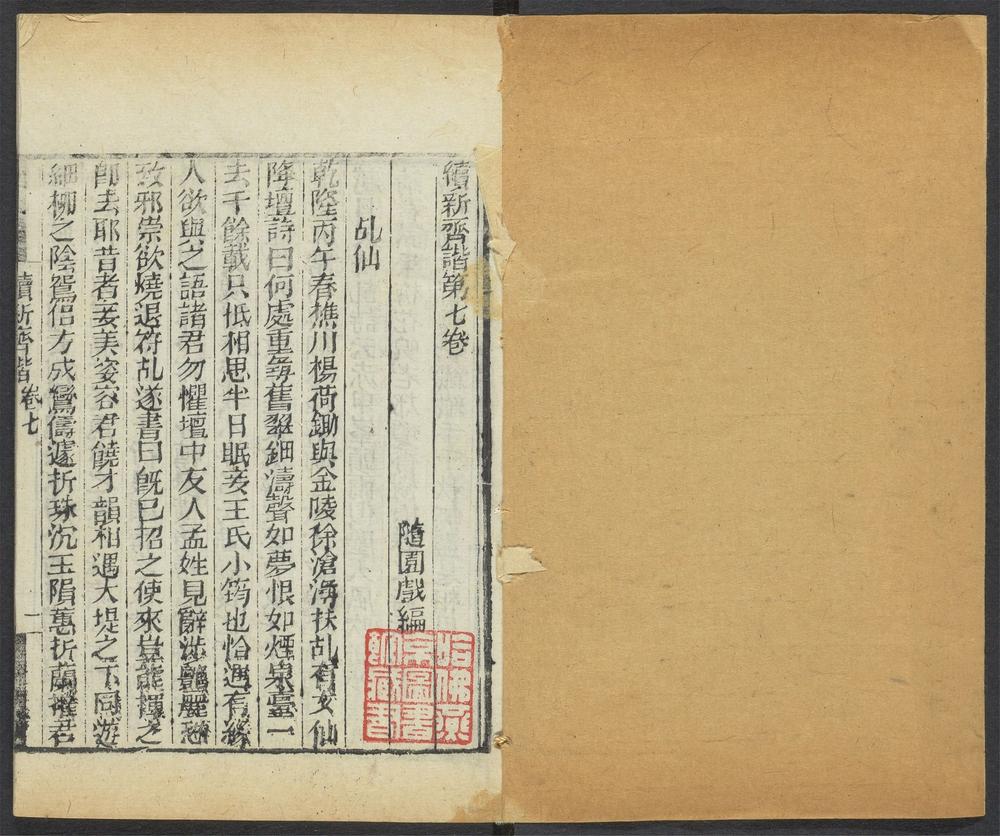 續新齊諧第七卷
隨園戲編
哈佛燕
京圖書
館藏
乩仙
乾隆丙午春樵川楊荷鋤與金陵徐滄海扶乩有女仙
降壇詩曰何處重尋舊翠鈿濤聲如夢恨如煙泉臺一
去千餘載只抵相思半日眠妾王氏小筠也恰遇有緣
人欲與之語諸君勿懼壇中友人孟姓見辭涉豔麗恐
致邪祟欲燒退符乩遂書曰既已招之使來豈能揮之
卽去耶昔者妾美姿容君饒才韻相遇大堤之下同遊
細柳之陰鴛侶方成鸞儔遽折珠沉玉隕蕙折蘭摧君
續新齊諧 卷七 一